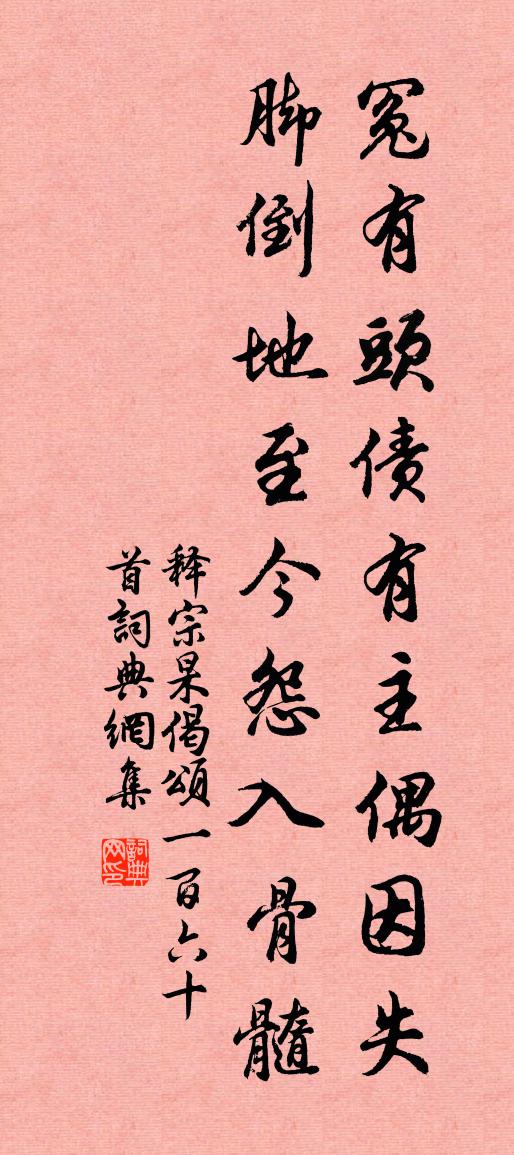 冤有頭債有主偶因失
脚倒地至今怨入骨髓
释宗杲偈頌一百六十
首詞典網集
詞典网印